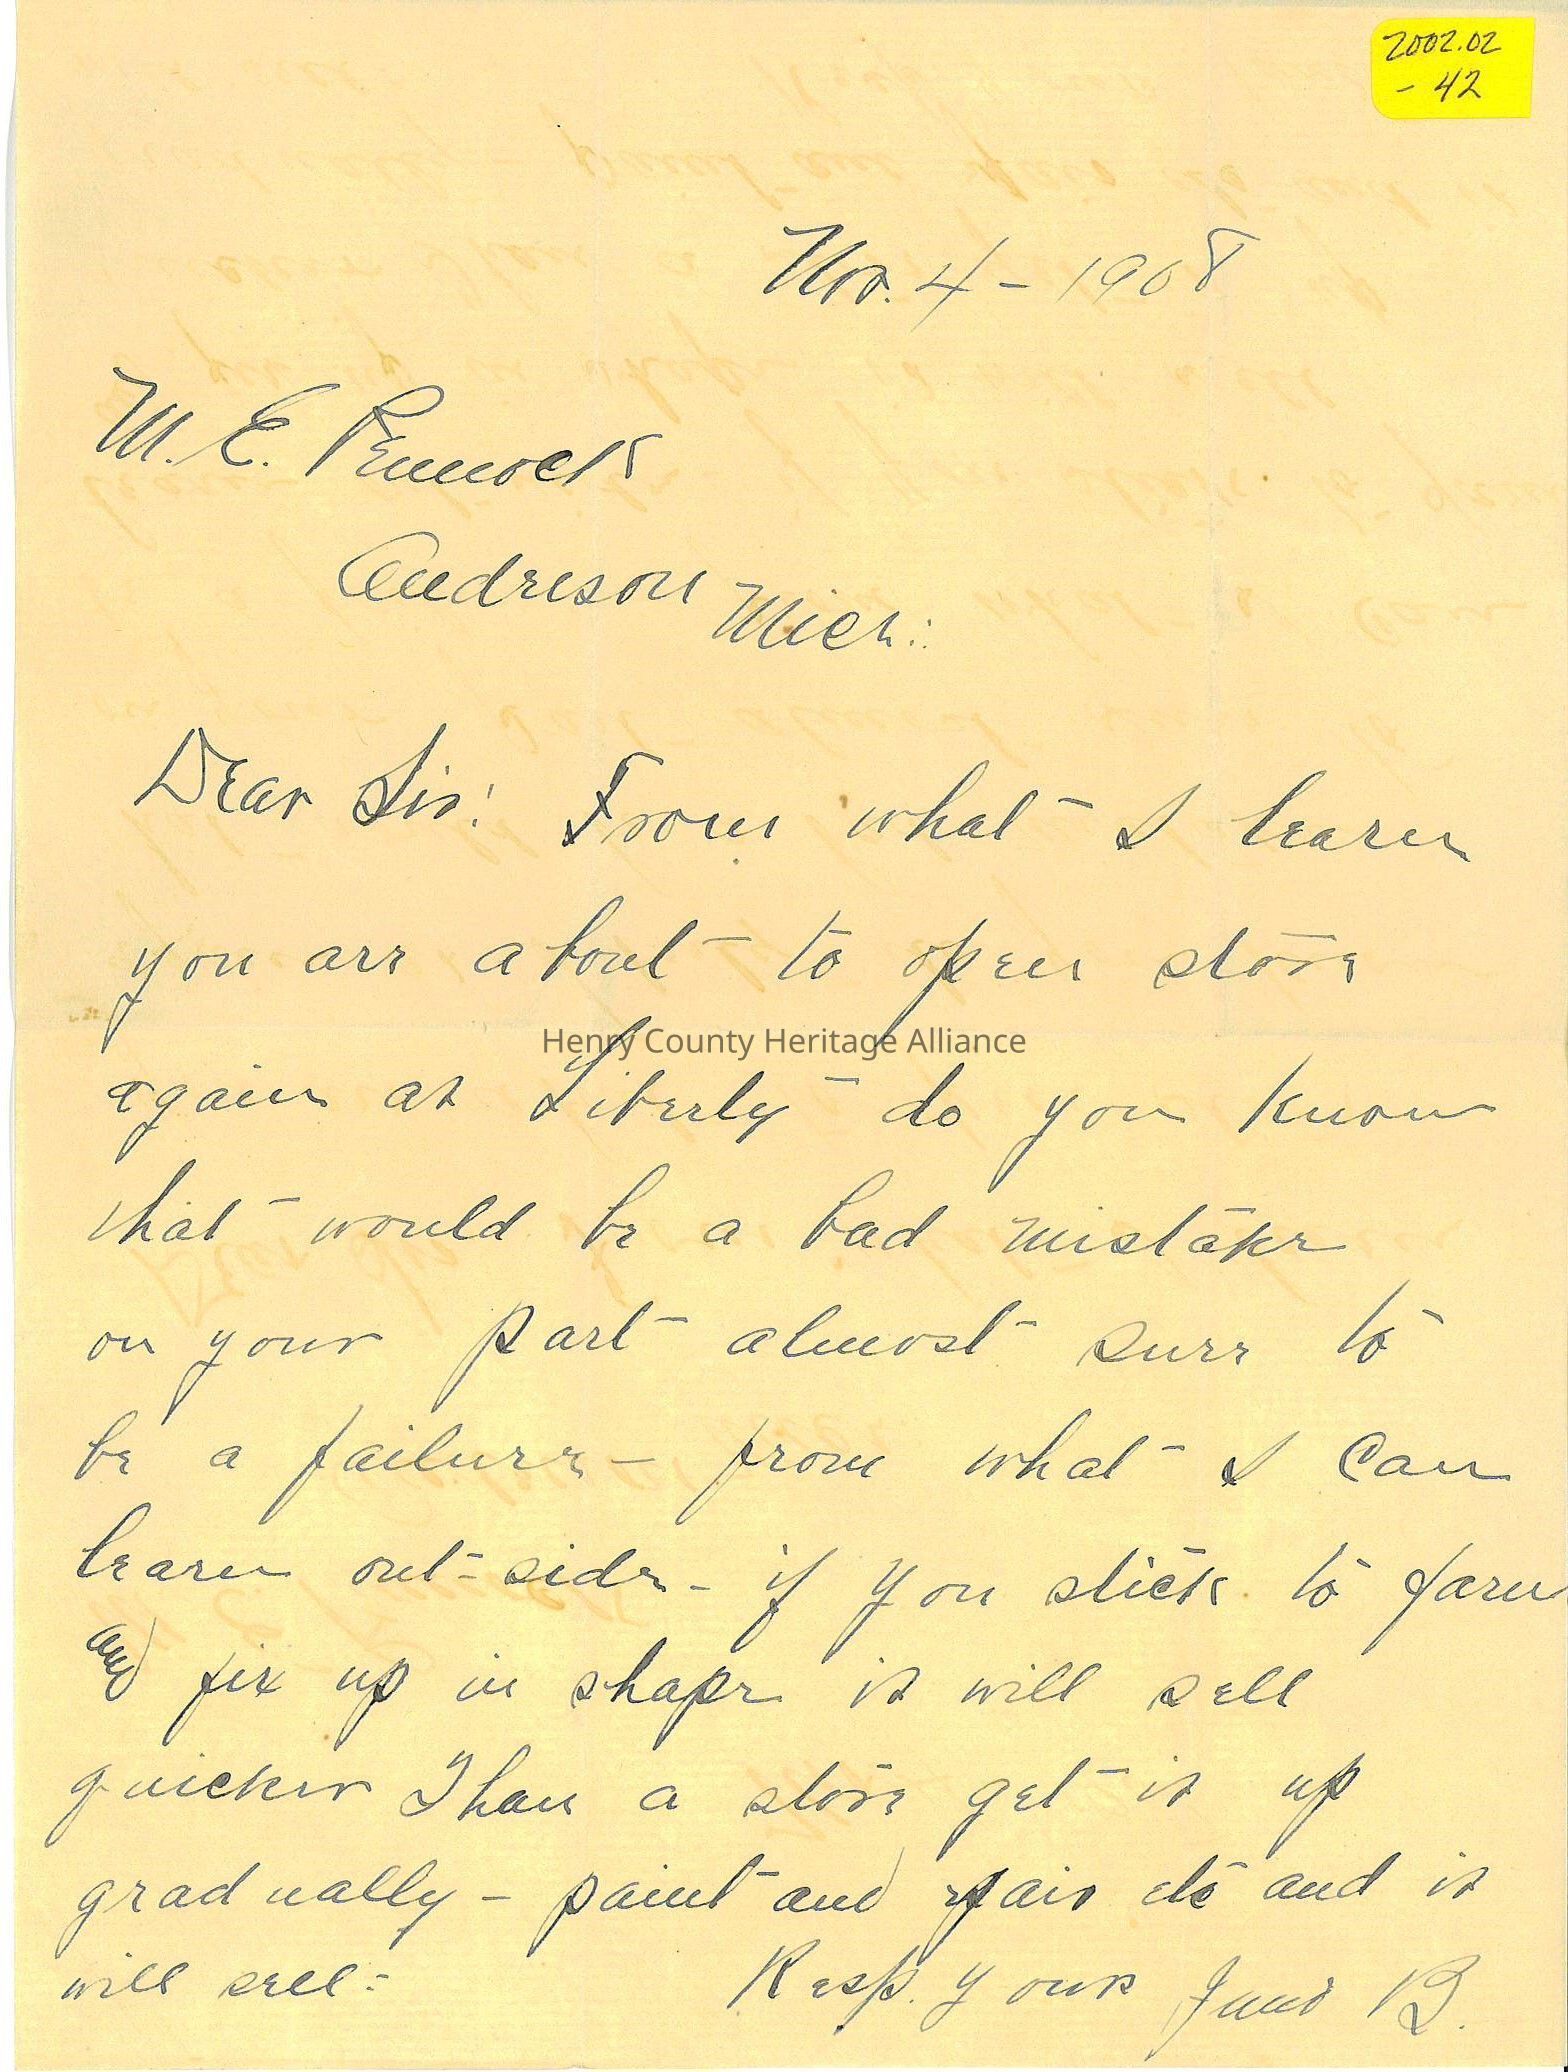 2002.02
- 42
Nov. 4 - 1908
M. E. Pennock
Andreson Mich:
Dear Sir: From what I learn
you are about to open store
again at Liberty do you know
that would be a bad mistake
on your part almost sure to
be a failure - from what I can
learn out-side - if you stick to farm
and fix up in shape it will sell
quicker Than a store get it up
gradually - paint and repair etc and it
will sell:
Resp. yours B.
Henry County Heritage Alliance